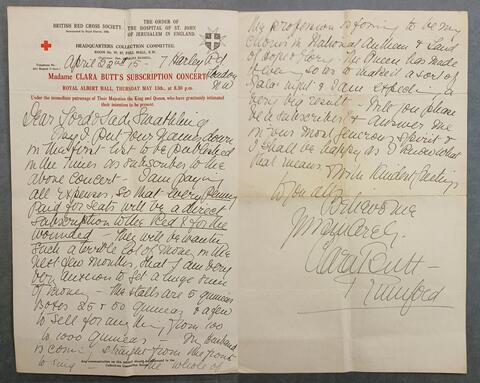 BRITISH RED CROSS SOCIETY.
THE ORDER OF
THE HOSPITAL OF ST. JOHN
OF JERUSALEM IN ENGLAND.
HEADQUARTERS COLLECTION COMMITTEE.
April 22nd 15 - 7 Harley Rd
London
NW
Madame CLARA BUTT'S SUBSCRIPTION CONCERT
ROYAL ALBERT HALL, THURSDAY MAY 13th, at 8.30 p.m.
Under the immediate patronage of Their Majesties the King and Queen, who have graciously intimated
their intention to be present.
Dear Lord & Lady Swaythling
May I put your names down
in the first list to be published
in the Times as subscribers to the
above Concert - I am paying
all expenses. So that every penny
paid for seats will be a direct
subscription to the Red X for the
wounded - They will be wanting
such a terrible lot of money in the
next two months, that I am very
very anxious to get a huge sum
of money - The stalls are 5 guineas
Boxes 25 & 50 guineas &
to sell for any thing from 100
to 1000 guineas - My husband
is coming straight from the front
to sing - The whole of
my profession is going to be my
chorus in National Anthem & Land
of Hope & Glory - The Queen has made
it evening so as to make it a sort of
Gala night & I am expecting a
very big result - Will you please
be a subscriber & answer me
in your most generous spirit &
I shall be happy as I know what
that means & With kindest greetings
to you all
Believe me
Yours sincerely
Clara Butt -
Rumford